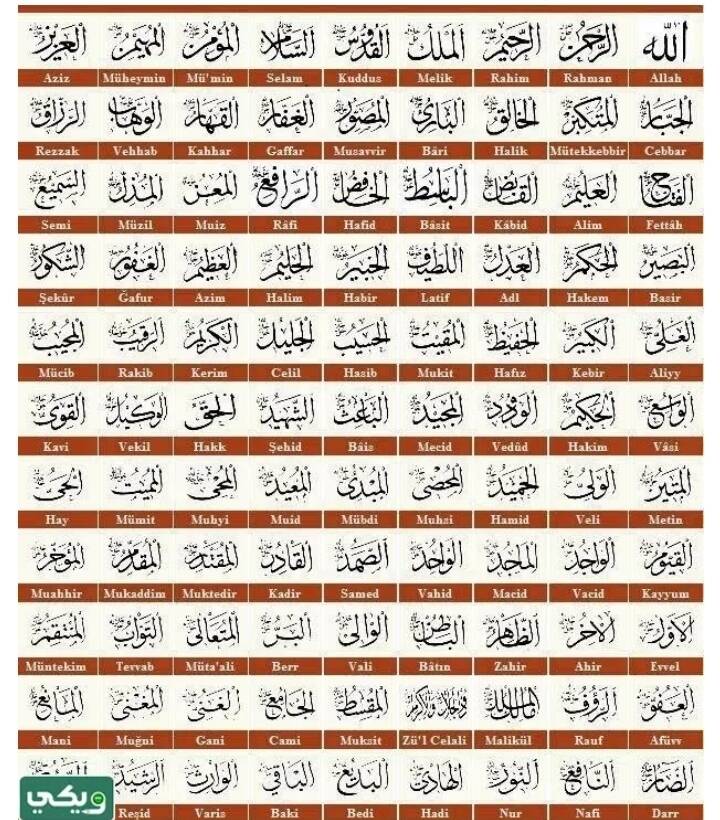 الله الرحمن الرحيم الملك القدوس السلام المؤمن المهيمن العزيز
Aziz Müheymin Mü'min Selam Kuddus Melik Rahim Rahman Allah
الجبار المتكبر الخالق البارئ المصور الغفار القهار الوهاب الرزاق
Rezzak Vehhab Kahhar Gaffar Musavvir Bâri Halik Mütekkebbir Cebbar
الفتاح العليم القابض الباسط الخافض الرافع المعز المذل السميع
Semi Müzil Muiz Râfi Hafid Bâsit Kâbid Alim Fettâh
البصير الحكم العدل اللطيف الخبير الحليم العظيم الغفور الشكور
Şekûr Ğafur Azim Halim Habir Latif Adl Hakem Basir
العلي الكبير الحفيظ المقيت الحسيب الجليل الكريم الرقيب المجيب
Mücib Rakib Kerim Celil Hasib Mukit Hafız Kebir Aliyy
الواسع الحكيم الودود المجيد الباعث الشهيد الحق الوكيل القوي
Kavi Vekil Hakk Şehid Bâis Mecid Vedûd Hakim Vâsi
المتين الولي الحميد المحصي المبدئ المعيد المحيي المميت الحي
Hay Mümit Muhyi Muid Mübdi Muhsi Hamid Veli Metin
القيوم الواجد الماجد الواحد الصمد القادر المقتدر المقدم المؤخر
Muahhir Mukaddim Muktedir Kadir Samed Vahid Macid Vacid Kayyum
الاول الاخر الظاهر الباطن الوالي البر المتعالي التواب المنتقم
Müntekim Tevvab Müta'ali Berr Vali Bâtın Zahir Ahir Evvel
العفو الرؤوف مالك الملك ذو الجلال والاكرام المقسط الجامع الغني المغني المانع
Mani Muğni Gani Cami Muksit Zü'l Celali Malikül Rauf Afüvv
الضار النافع النور الهادي البديع الباقي الوارث الرشيد
ويكي
Reşid Varis Baki Bedi Hadi Nur Nafi Darr